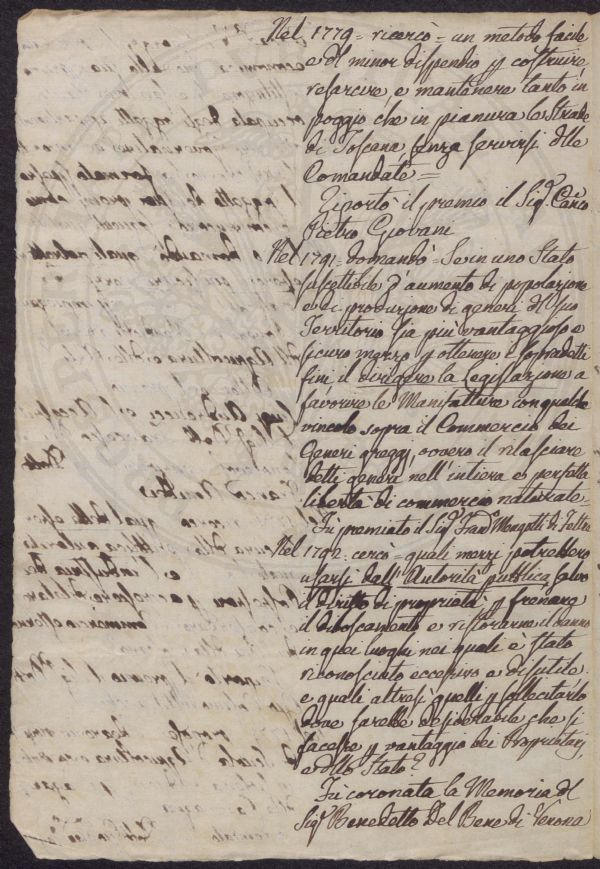 Nel 1779 = ricercò = un metodo facile
e di minor dispendio p costruire,
resarcire, e mantenere tanto in
poggio che in pianura le Strade
di Toscana senza servirsi dlle
Comandate =
Riportò il premio il Sig.r Can.co
Pietro Giovani
Nel 1791 = domandò = Se in uno Stato
suscettibile d'aumento di popolazione
e di produzione di generi dl suo
Territorio sia più vantaggioso e
sicuro mezzo p ottenere i sopradetti
fini il dirigere la Legislazione a
favorire le Manifatture con qualche
vincolo sopra il Commercio dei
Generi greggi, ovvero il rilasciare
detti generi nell'intiera e perfetta
libertà di commercio naturale =
Fù premiato il Sig.r Fran.co Mengotti di Feltre
Nel 1792 = cercò = quali mezzi potrebbero
usarsi dall'Autorità pubblica salvo
il diritto di proprietà p frenare
il diboscamento e ristorarne il danno
in quei luoghi nei quali è stato
riconosciuto eccessivo e disutile
e quali altresì quelli p sollecitarlo
dove sarebbe desiderabile che si
facesse p vantaggio dei Proprietarj
e dllo Stato?
Fù coronata la Memoria dl
Sig.r Benedetto Del Bene di Verona